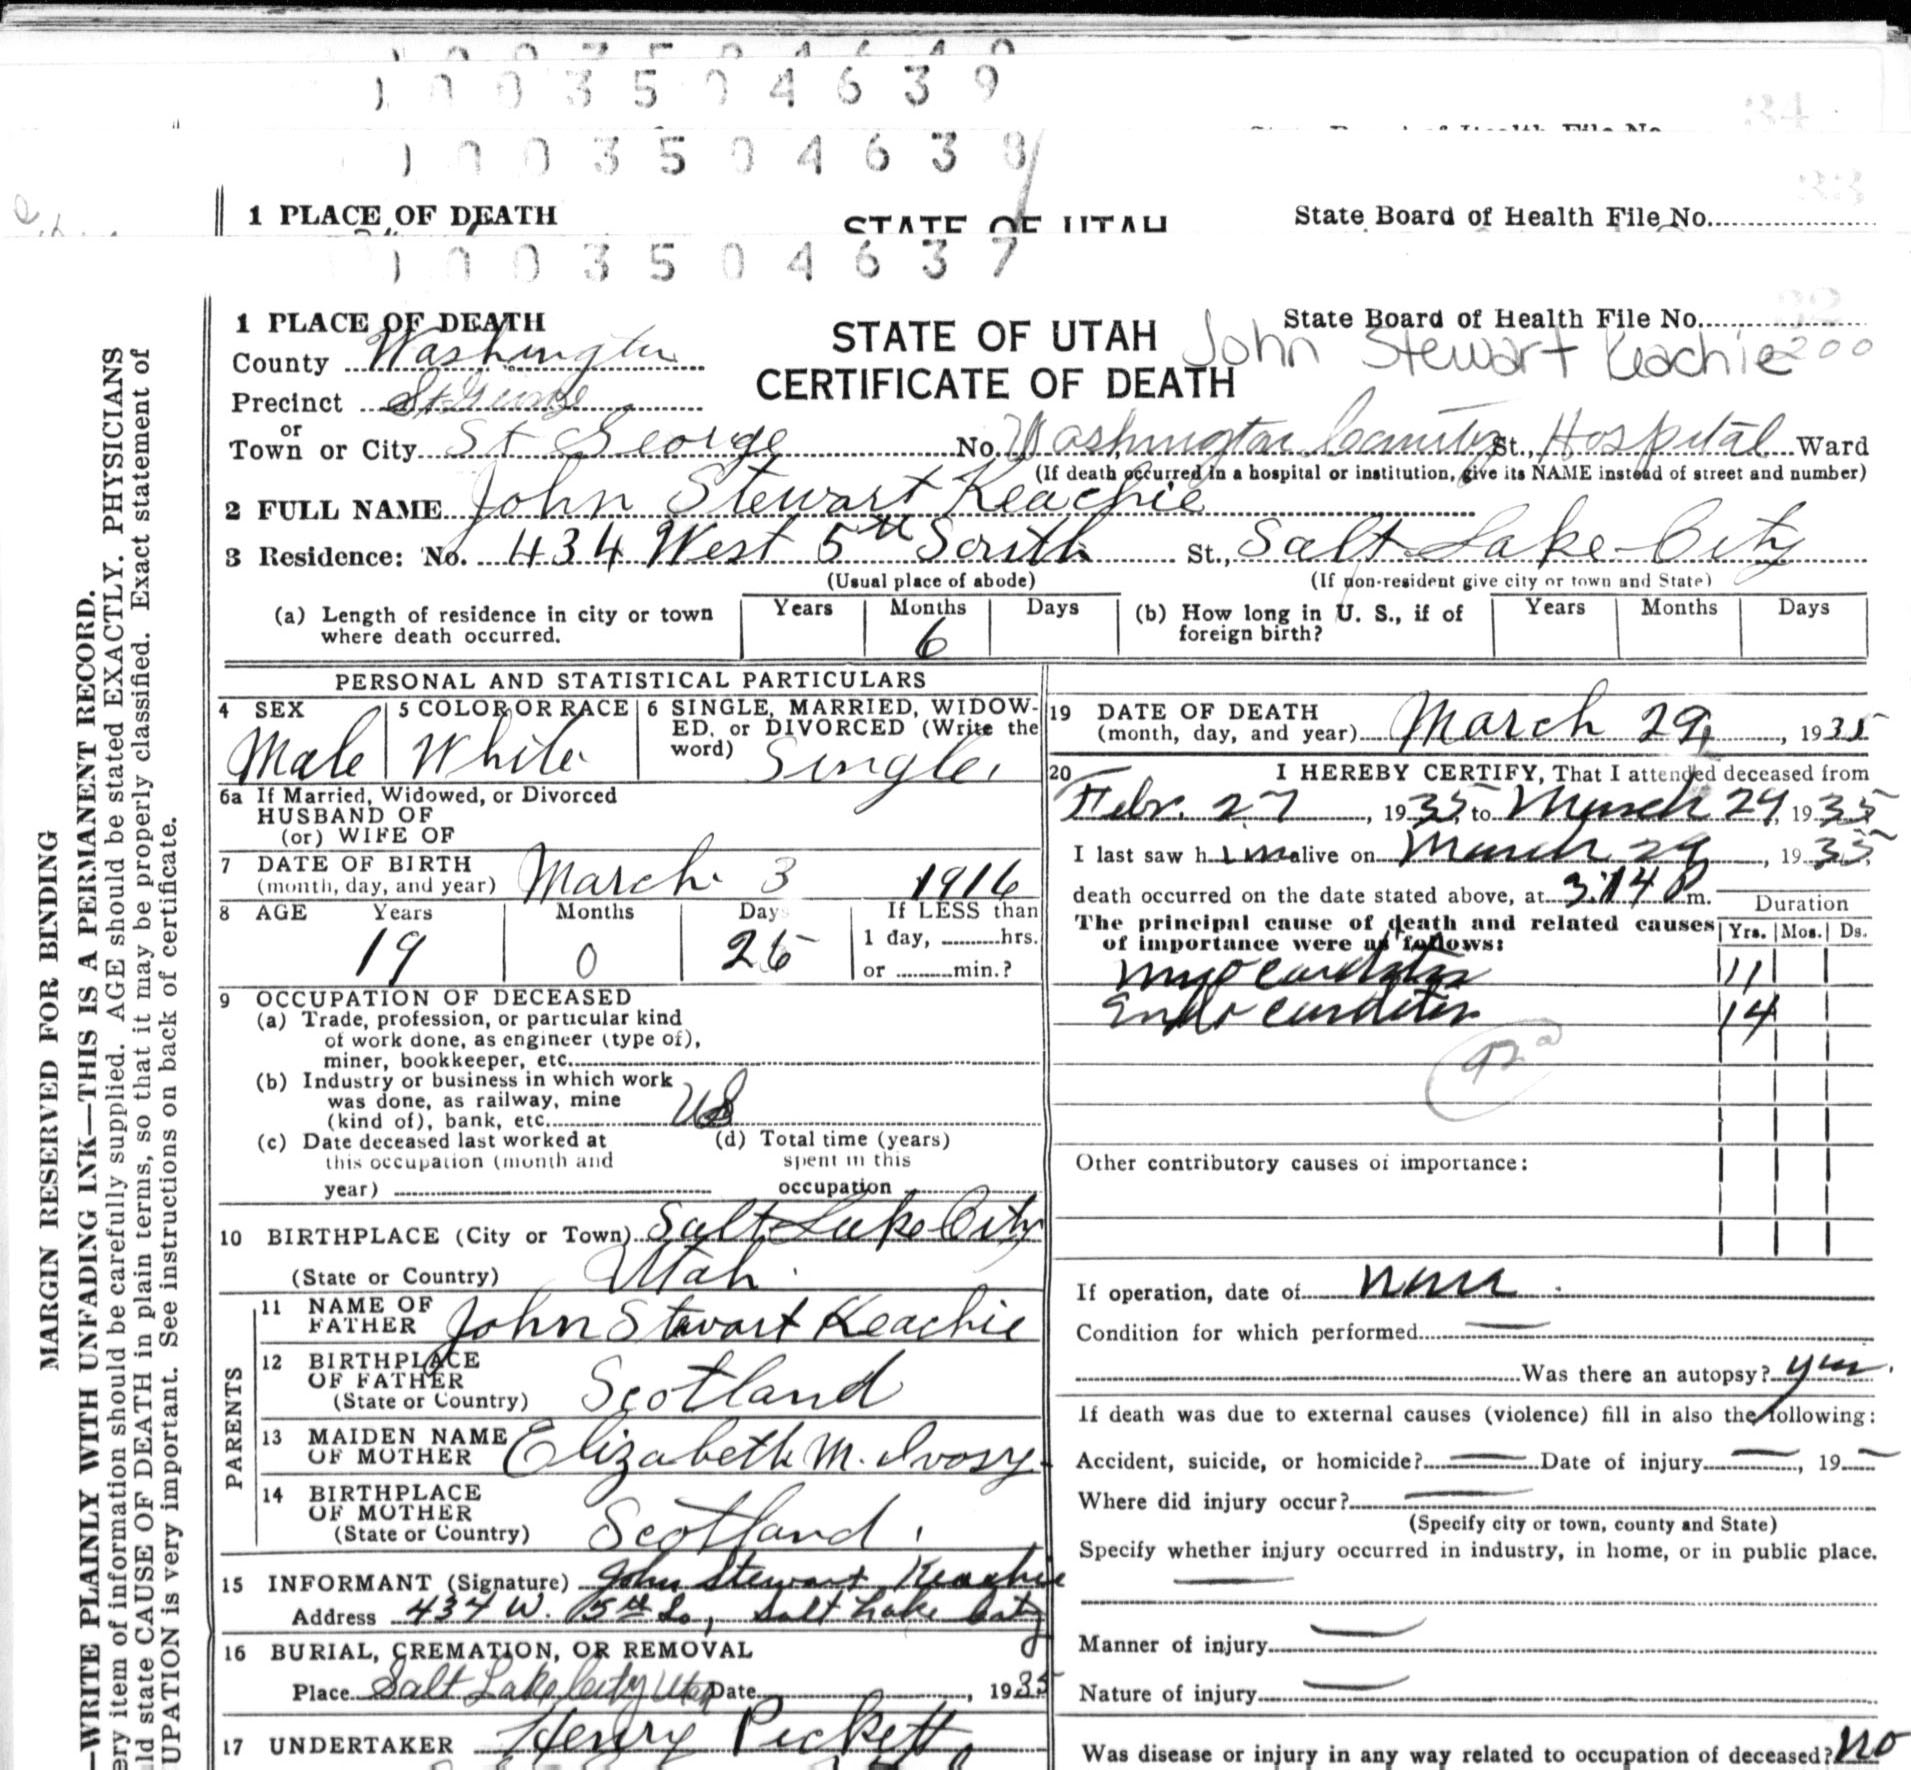 1003504639
34
1003504638
33
1 PLACE OF DEATH
STATE OF UTAH
State Board of Health File No.
1003504637
32
1 PLACE OF DEATH
State Board of Health File No.
County Washington
STATE OF UTAH
John Stewart Keachie 200
Precinct St George
CERTIFICATE OF DEATH
or
Town or City St George No. Washington County St., Hospital Ward
(If death occurred in a hospital or institution, give its NAME instead of street and number)
2 FULL NAME John Stewart Keachie
3 Residence: No. 434 West 5th South St., Salt Lake City
(Usual place of abode) (If non-resident give city or town and State)
(a) Length of residence in city or town where death occurred. Years Months 6 Days
(b) How long in U. S., if of foreign birth? Years Months Days
PERSONAL AND STATISTICAL PARTICULARS
4 SEX Male
5 COLOR OR RACE White
6 SINGLE, MARRIED, WIDOW-
ED, or DIVORCED (Write the
word) Single
6a If Married, Widowed, or Divorced
HUSBAND OF
(or) WIFE OF
7 DATE OF BIRTH
(month, day, and year) March 3 1916
8 AGE Years Months Days If LESS than
19 0 26 1 day, hrs.
or min.?
9 OCCUPATION OF DECEASED
(a) Trade, profession, or particular kind
of work done, as engineer (type of),
miner, bookkeeper, etc.
(b) Industry or business in which work
was done, as railway, mine
(kind of), bank, etc.
(c) Date deceased last worked at
this occupation (month and
year)
(d) Total time (years)
spent in this
occupation
10 BIRTHPLACE (City or Town) Salt Lake City
(State or Country) Utah
PARENTS
11 NAME OF
FATHER John Stewart Keachie
12 BIRTHPLACE
OF FATHER
(State or Country) Scotland
13 MAIDEN NAME
OF MOTHER Elizabeth M. Ivory
14 BIRTHPLACE
OF MOTHER
(State or Country) Scotland
15 INFORMANT (Signature) John Stewart Keachie
Address 434 W. 5th So, Salt Lake City
16 BURIAL, CREMATION, OR REMOVAL
Place Salt Lake City Utah Date , 1935
17 UNDERTAKER Henry Pickett
19 DATE OF DEATH
(month, day, and year) March 29, 1935
20 I HEREBY CERTIFY, That I attended deceased from
Febr. 27, 1935, to March 29, 1935
I last saw him alive on March 29, 1935
death occurred on the date stated above, at 3:14 P m.
Duration
The principal cause of death and related causes Yrs. Mos. Ds.
of importance were as follows:
Myocarditis 11
Endocarditis 14
Other contributory causes of importance:
If operation, date of none
Condition for which performed
Was there an autopsy? yes.
If death was due to external causes (violence) fill in also the following:
Accident, suicide, or homicide? Date of injury , 19
Where did injury occur?
(Specify city or town, county and State)
Specify whether injury occurred in industry, in home, or in public place.
Manner of injury
Nature of injury
Was disease or injury in any way related to occupation of deceased? no
MARGIN RESERVED FOR BINDING
—WRITE PLAINLY WITH UNFADING INK—THIS IS A PERMANENT RECORD.
ery item of information should be carefully supplied. AGE should be stated EXACTLY. PHYSICIANS
uld state CAUSE OF DEATH in plain terms, so that it may be properly classified. Exact statement of
UPATION is very important. See instructions on back of certificate.